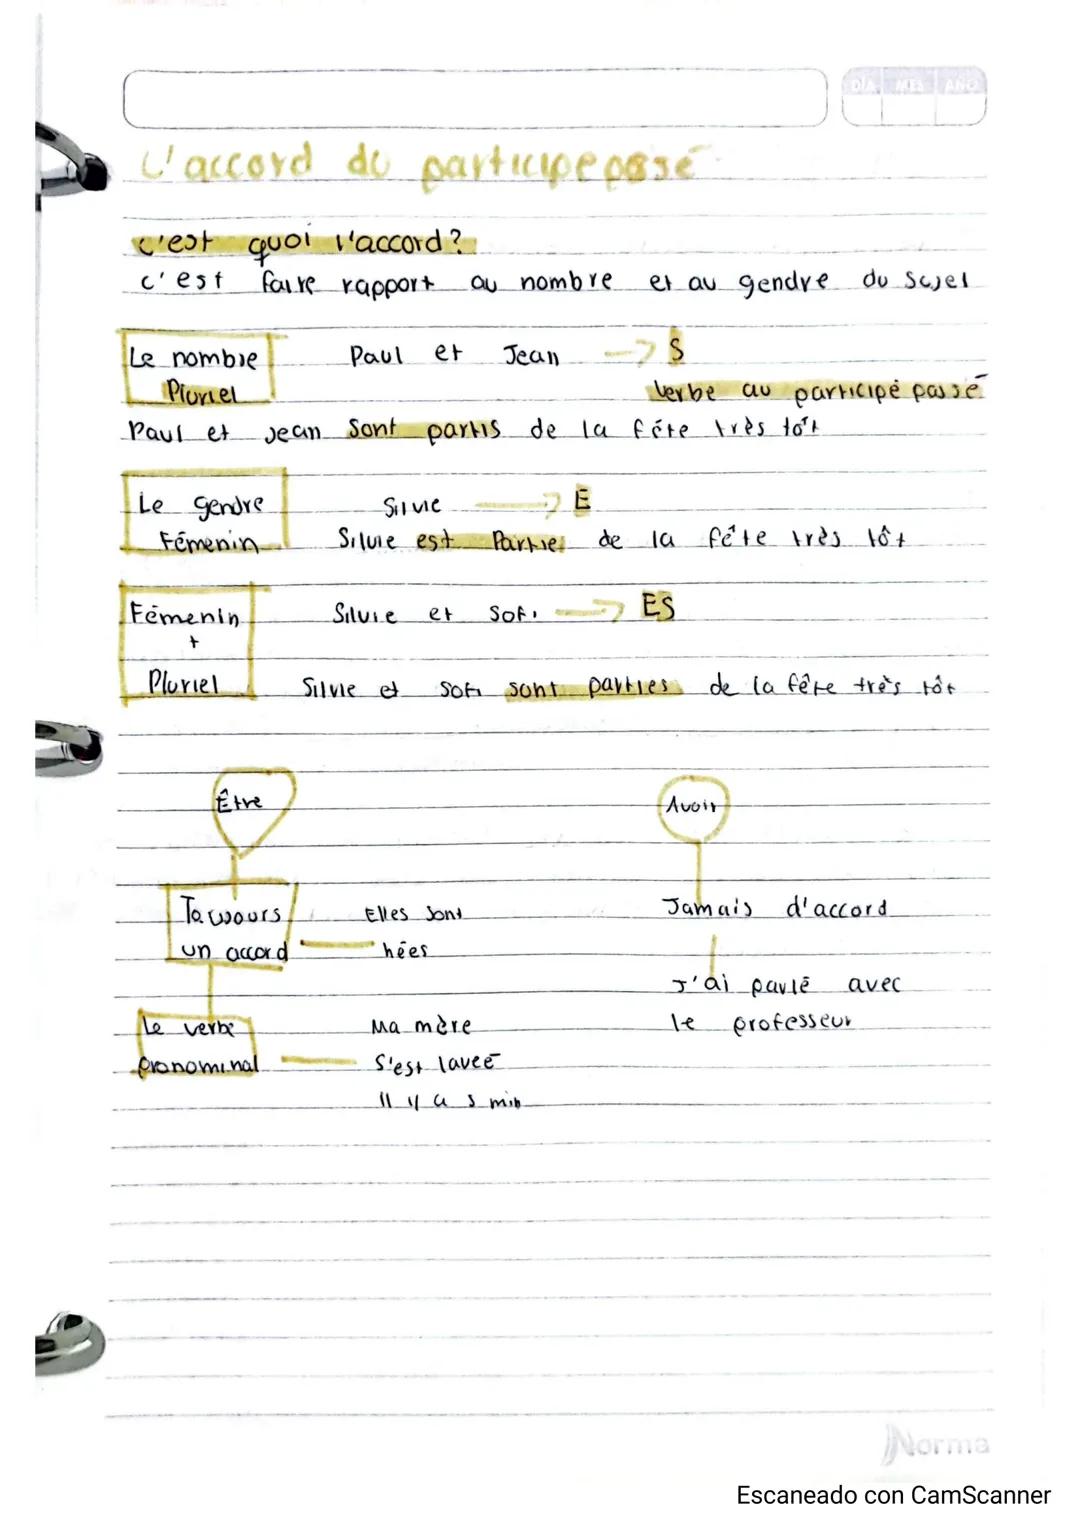 DÍA MES AÑO
L'accord du participe passé
c'est quoi l'accord?
c'est faire rapport au nombre et au gendre du sujet
Le nombre Paul et Jean → S
Pluriel Verbe au participé passé
Paul et Jean sont partis de la fête très tôt
Le gendre Silvie → E
Fémenin Silvie est Partie de la fête très tôt
Fémenin Silvie et Sofi → ES
+
Pluriel Silvie et Sofi sont parties de la fête très tôt
Être Avoir
Toujours Elles sont Jamais d'accord
un accord nées
J'ai parlé avec
Le verbe Ma mère le professeur
pronominal S'est lavée
Il y a 5 min
Norma
Escaneado con CamScanner